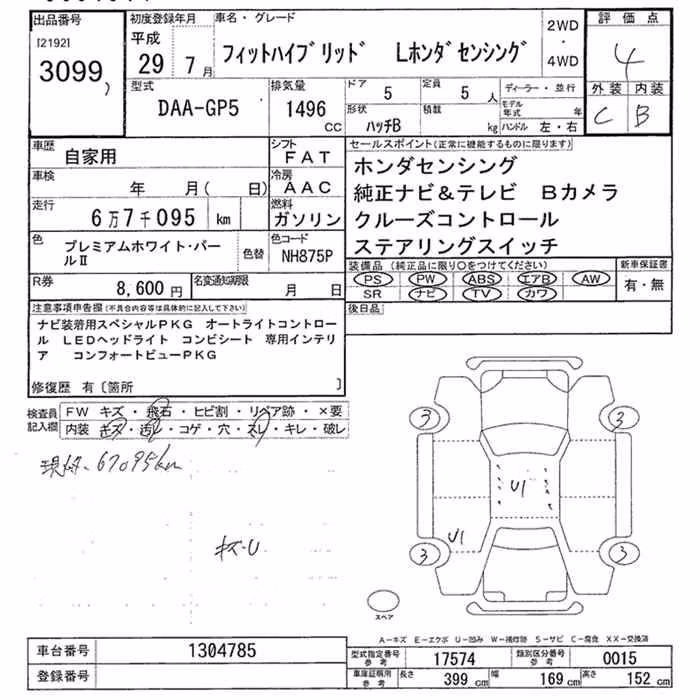 出品番号
[2192]
3099
初度登録年月
平成
29 7月
車名・グレード
フィットハイブリッド Lホンダセンシング
2WD
・
4WD
評価点
4
外装 内装
C B
型式
DAA-GP5
排気量
1496
CC
ドア
5
定員
5 人
形状
ハッチB
積載
kg
ディーラー・並行
モデル
年式 年
ハンドル 左・右
車歴
自家用
シフト
FAT
車検
年 月( 日)
冷房
AAC
走行
6万7千095 km
燃料
ガソリン
色
プレミアムホワイト・パー
ルⅡ
色替
色コード
NH875P
R券
8,600円
名変通知期限
月 日
セールスポイント(正常に機能するものに限ります)
ホンダセンシング
純正ナビ&テレビ Bカメラ
クルーズコントロール
ステアリングスイッチ
装備品(純正品に限り○をつけてください)
PS PW ABS エアB AW
SR ナビ TV カワ
新車保証書
有・無
後日品
注意事項申告欄(不具合内容等は具体的に記入して下さい)
ナビ装着用スペシャルPKG オートライトコントロー
ル LEDヘッドライト コンビシート 専用インテリ
ア コンフォートビューPKG
修復歴 有〔箇所 〕
検査員
記入欄
FW キズ・飛石・ヒビ割・リペア跡・×要
内装 キズ・汚レ・コゲ・穴・スレ・キレ・破レ
現格-67095km
キズ-U
3
3
U1
U1
3
3
スペア
A-キズ E-エクボ U-凹み W-補修跡 S-サビ C-腐食 XX-交換済
車台番号
1304785
登録番号
型式指定番号
参考
17574
類別区分番号
参考
0015
車庫証明用
参考
長さ
399 cm
幅
169 cm
高さ
152 cm